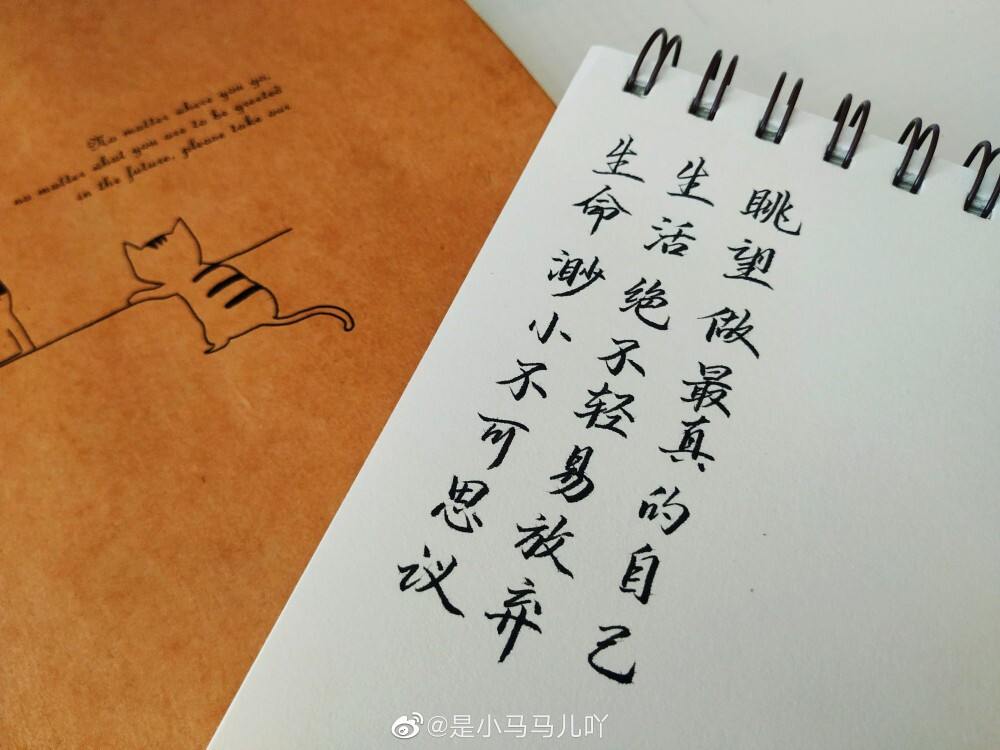 No matter where you go,
no matter what you are to be greeted
in the future, please take our
眺望做最真的自己
生活绝不轻易放弃
生命渺小不可思议
@是小马马儿吖